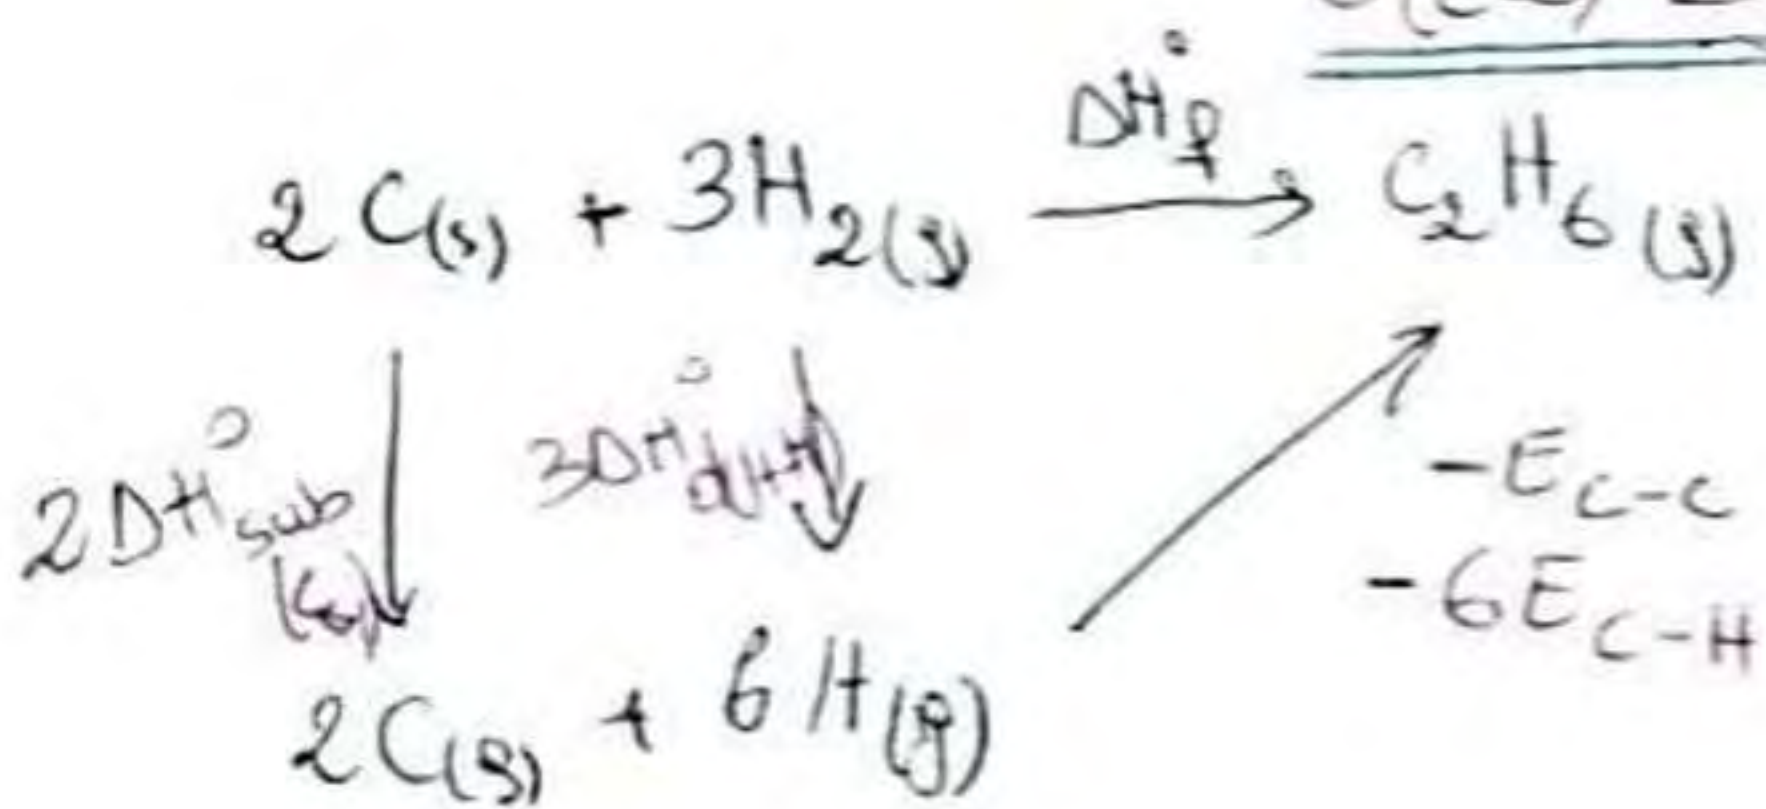 ΔH°f
2C(s) + 3H2(g) → C2H6(g)
2ΔH°sub 3ΔH°d(H-H)
-E C-C
-6E C-H
2C(g) + 6H(g)